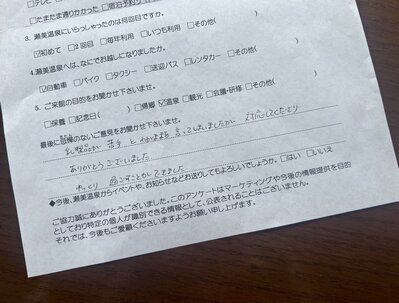 □テレビ
□たまたま通りかかった □宿泊予約
3. 瀬美温泉にいらっしゃったのは何回目ですか。
☑初めて □2回目 □毎年利用 □いつも利用 □その他( )
4. 瀬美温泉へは、なにでお越しになりましたか。
☑自動車 □バイク □タクシー □送迎バス □レンタカー □その他( )
5. ご来館の目的をお聞かせ下さいませ。
□保養 □記念日( ) □帰郷 ☑温泉 □観光 □会議・研修 □その他( )
最後に忌憚のないご意見をお聞かせ下さいませ。
乳製品が苦手とわがままを言ってしまいましたが 対応してくださり
ありがとうございました
ゆっくり 過ごすことができました
◆今後、瀬美温泉からイベントや、お知らせなどお送りしてもよろしいでしょうか。□はい □いいえ
ご協力誠にありがとうございました。このアンケートはマーケティングや今後の情報提供を目的
としており特定の個人が識別できる情報として、公表されることはございません。
それでは、今後もご愛顧くださいますようお願い申し上げます。